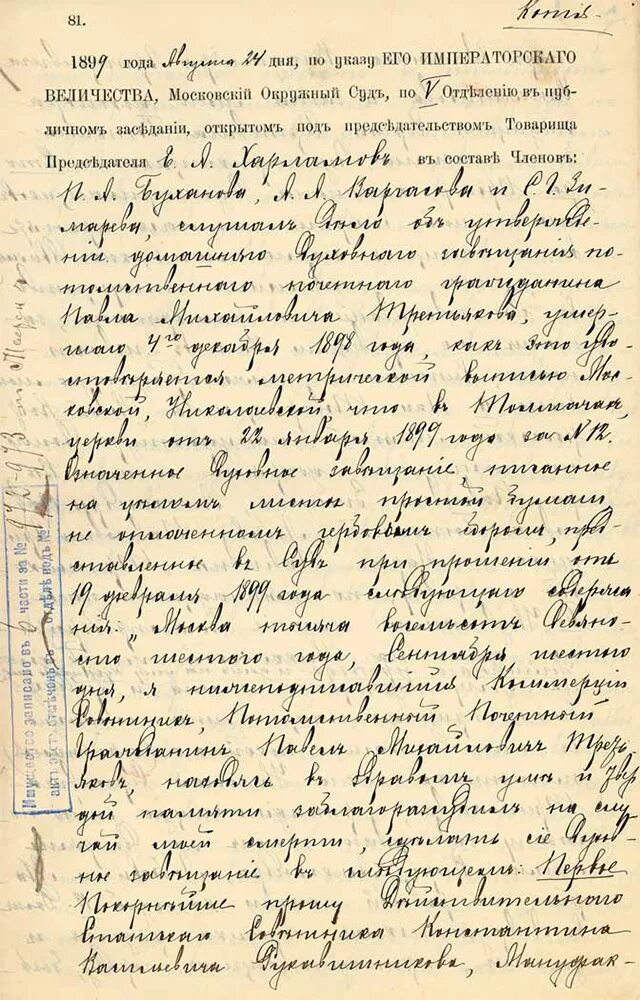 81.
Копія
1899 года Августа 24 дня, по указу ЕГО ИМПЕРАТОРСКАГО
ВЕЛИЧЕСТВА, Московскій Окружный Судъ, по V Отдѣленію въ пуб-
личномъ засѣданіи, открытомъ подъ предсѣдательствомъ Товарища
Предсѣдателя Е. А. Харламовъ въ составѣ Членовъ:
П. А. Буханова, А. А. Варгасова и С. І. Зи-
марева, слушалъ Дѣло объ утвержде-
ніи домашняго Духовнаго завѣщанія по-
томственнаго почетнаго гражданина
Павла Михайловича Третьякова, умер-
шаго 4го декабря 1898 года, какъ это удо-
стовѣряется метрической выписью Мос-
ковской, Николаевской, что въ Толмачахъ,
церкви отъ 22 января 1899 года за N 12.
Означенное Духовное завѣщаніе писанное
на цѣломъ листѣ простой бумаги
не оплаченномъ гербовымъ сборомъ, пред-
ставленное въ Судъ при прошеніи отъ
19 февраля 1899 года слѣдующаго содержа-
нія: „Москва тысяча восемьсотъ девяно-
сто шестого года, Сентября шестого
дня, я нижеподписавшійся Коммерціи
Совѣтникъ, Потомственный Почетный
Гражданинъ Павелъ Михайловичъ Треть-
яковъ, находясь въ здравомъ умѣ и твер-
дой памяти заблагоразсудилъ на слу-
чай моей смерти, сдѣлать сіе Духов-
ное завѣщаніе въ слѣдующемъ: Первое
Покорнѣйше прошу Дѣйствительнаго
Статскаго Совѣтника Константина
Васильевича Рукавишникова, Мануфак-
Имущество записано въ 6 части за №
актъ отмѣченъ въ отдѣлѣ подъ №